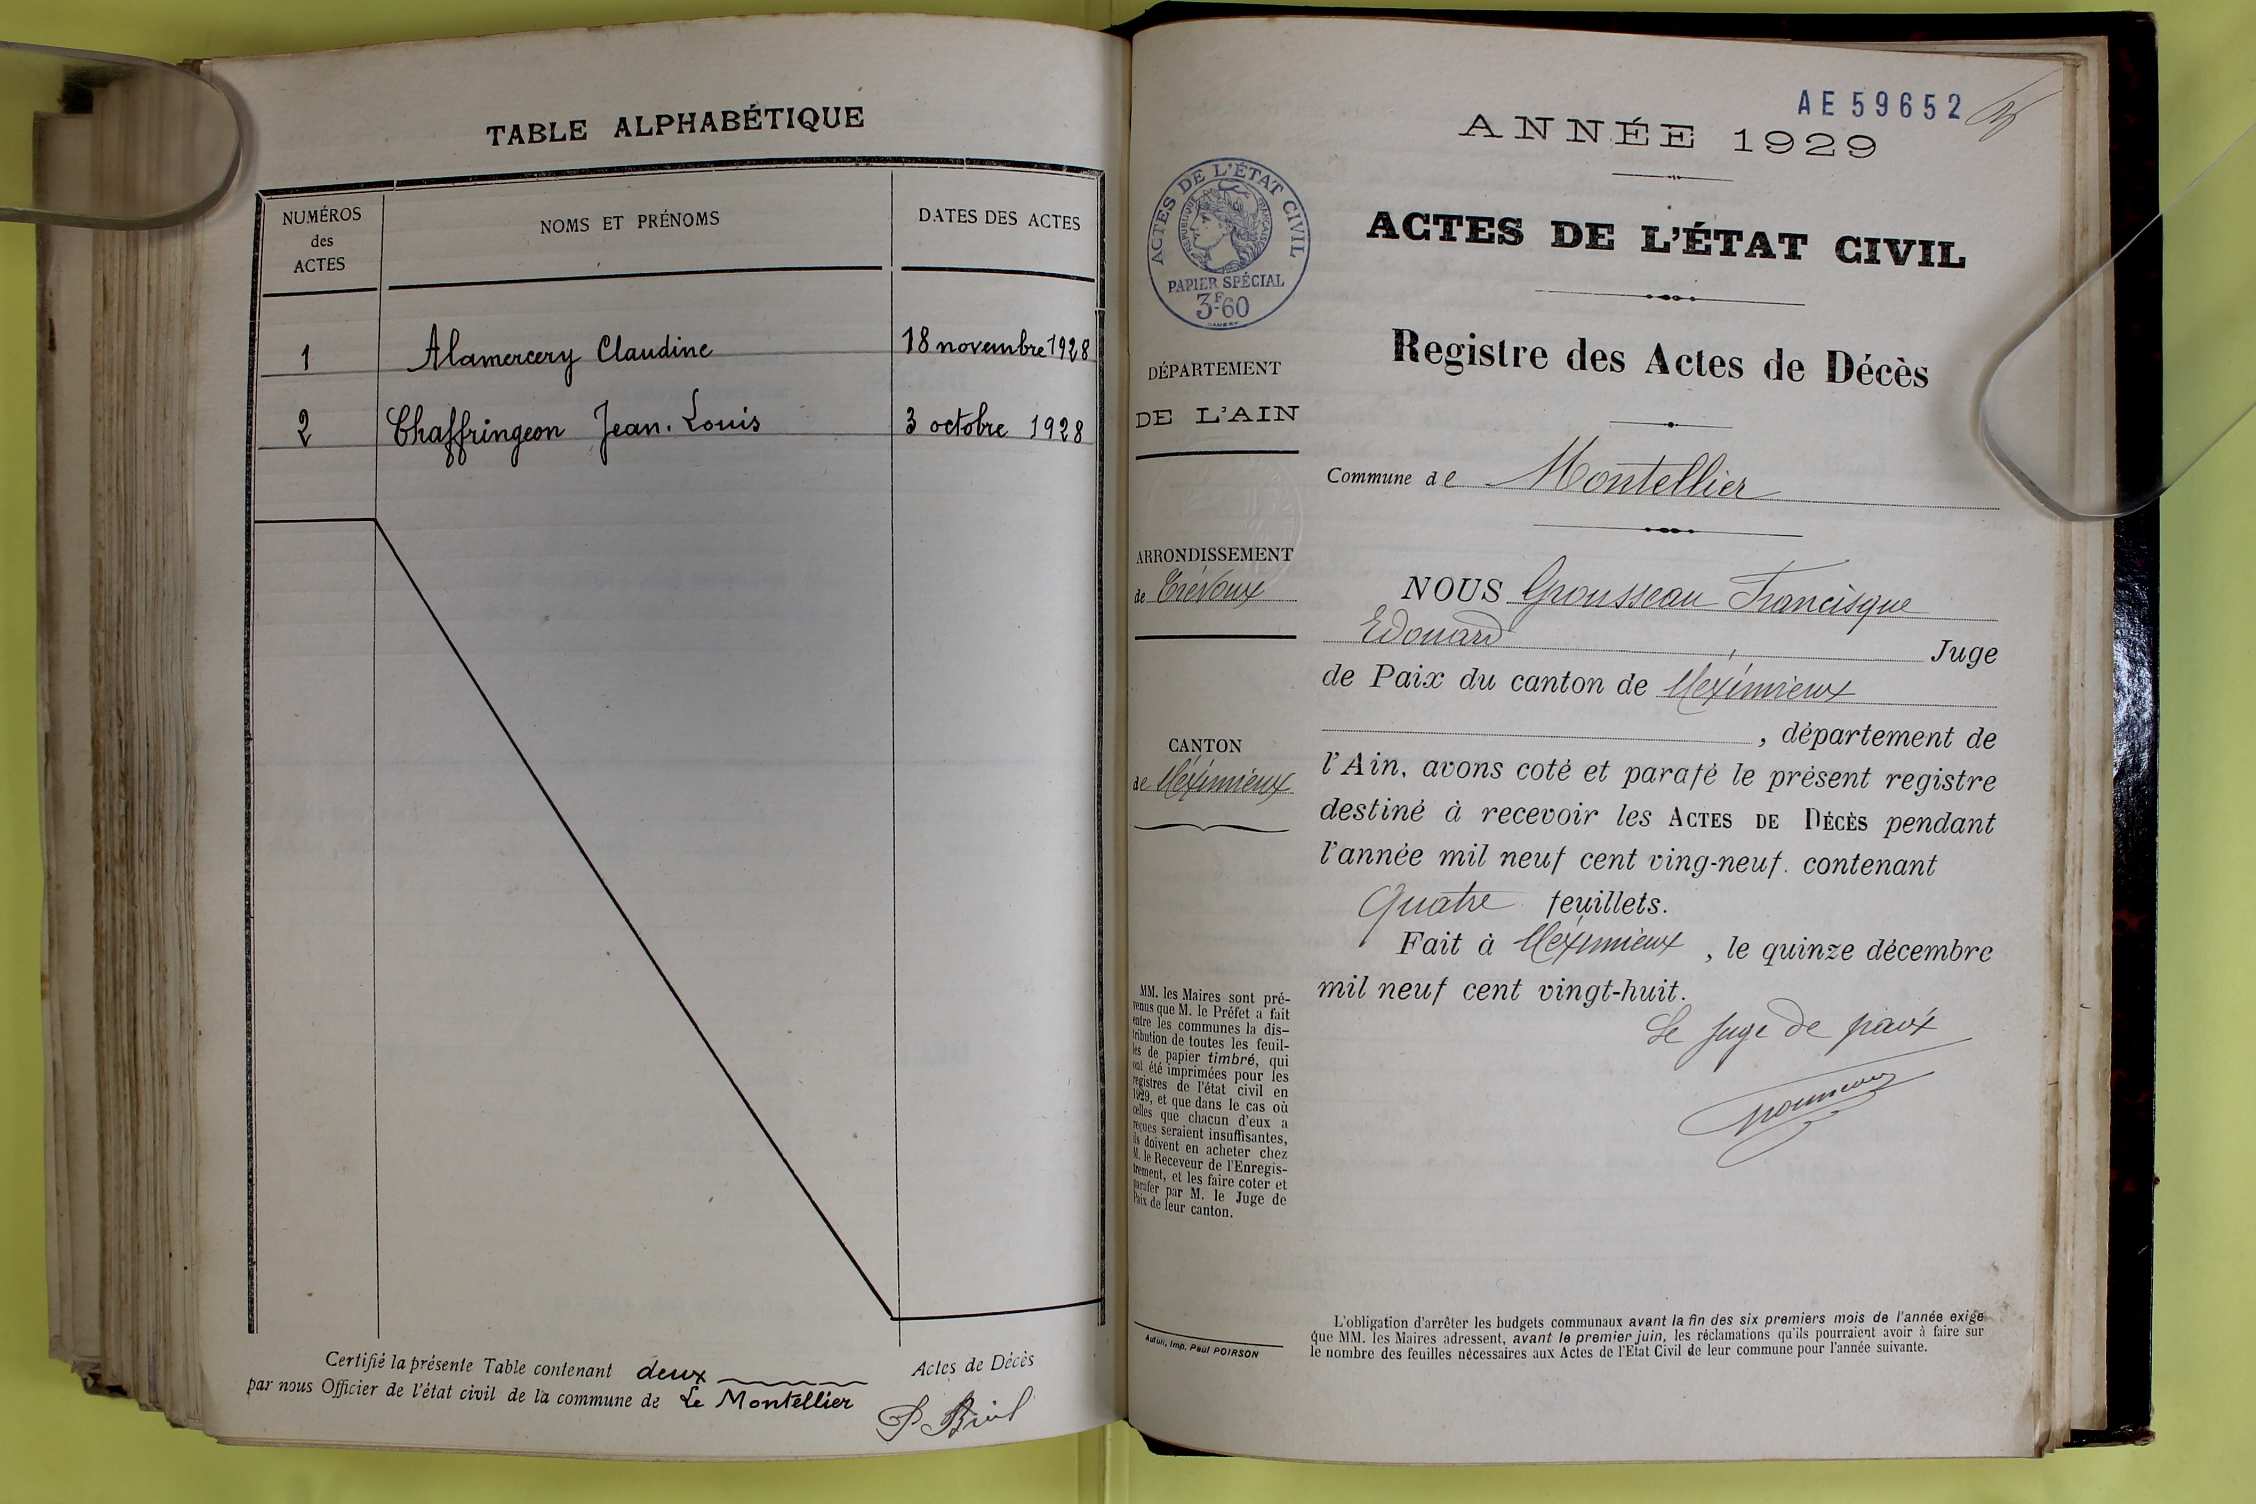 TABLE ALPHABÉTIQUE
NUMÉROS
des
ACTES
NOMS ET PRÉNOMS
DATES DES ACTES
1 Alamercery Claudine 18 novembre 1928
2 Chaffringeon Jean-Louis 3 octobre 1928
Certifié la présente Table contenant deux Actes de Décès
par nous Officier de l'état civil de la commune de Le Montellier
AE 59652
ANNÉE 1929
ACTES DE L'ÉTAT CIVIL
RÉPUBLIQUE FRANÇAISE
PAPIER SPÉCIAL
3F60
ACTES DE L'ÉTAT CIVIL
Registre des Actes de Décès
DÉPARTEMENT
DE L'AIN
Commune de Montellier
ARRONDISSEMENT
de Trévoux
CANTON
de Méximieux
NOUS Grousseau Francisque
Edouard Juge
de Paix du canton de Meximieux
, département de
l'Ain, avons coté et parafé le présent registre
destiné à recevoir les ACTES DE DÉCÈS pendant
l'année mil neuf cent ving-neuf. contenant
Quatre feuillets.
Fait à Méximieux, le quinze décembre
mil neuf cent vingt-huit.
Le Juge de paix
MM. les Maires sont pré-
venus que M. le Préfet a fait
entre les communes la dis-
tribution de toutes les feuil-
les de papier timbré, qui
ont été imprimées pour les
registres de l'état civil en
1929, et que dans le cas où
celles que chacun d'eux a
reçues seraient insuffisantes,
ils doivent en acheter chez
M. le Receveur de l'Enregis-
trement, et les faire coter et
parafer par M. le Juge de
Paix de leur canton.
Autun, Imp. Paul POIRSON
L'obligation d'arrêter les budgets communaux avant la fin des six premiers mois de l'année exige
que MM. les Maires adressent, avant le premier juin, les réclamations qu'ils pourraient avoir à faire sur
le nombre des feuilles nécessaires aux Actes de l'Etat Civil de leur commune pour l'année suivante.